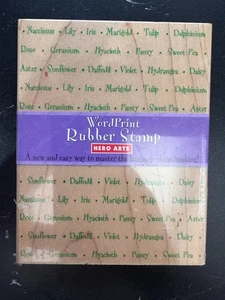 • Narcissus • Lily • Iris • Marigold • Tulip • Delphinium
Rose • Geranium • Hyacinth • Pansy • Sweet Pea
Aster • Sunflower • Daffodil • Violet • Hydrangea • Daisy
Narcissus • Lily • Iris • Marigold • Tulip • Delphinium
Rose • Geranium • Hyacinth • Pansy • Sweet Pea •
WordPrint
Rubber Stamp
HERO ARTS
A new and easy way to master the
Sunflower • Daffodil • Violet • Hydrangea • Daisy
Narcissus • Lily • Iris • Marigold • Tulip •
Rose • Geranium • Hyacinth • Pansy • Sweet Pea • Aster
Sunflower • Daffodil • Violet • Hydrangea • Daisy •
Narcissus • Lily • Iris • Marigold • Tulip • Delphinium
Rose • Geranium • Hyacinth • Pansy • Sweet Pea •